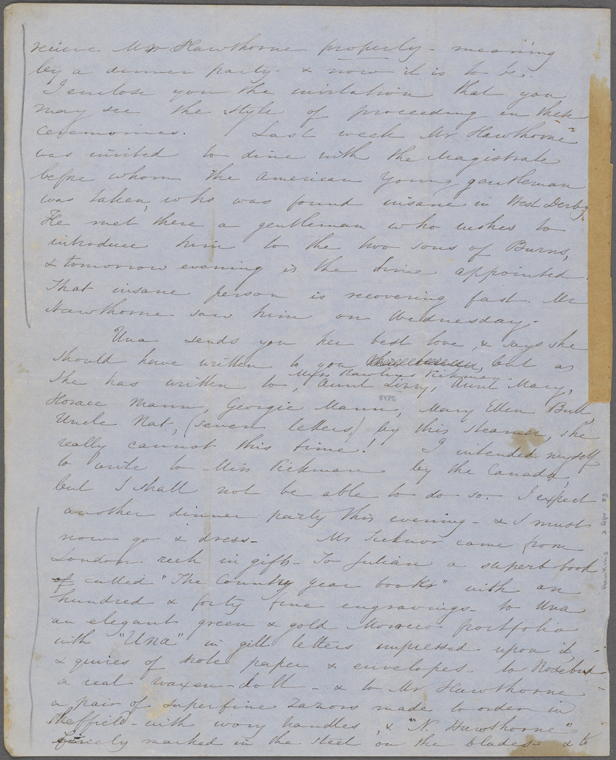 receive Mr Hawthorne properly - meaning
by a dinner party - & now it is to be.
I enclose you the invitation that you
may see the style of proceeding in these
ceremonies. Last week Mr Hawthorne
was invited to dine with the Magistrate
before whom the American young gentleman
was taken, who was found insane in West Derby.
He met there a gentleman who wishes to
introduce him to the two sons of Burns,
& tomorrow evening is the time appointed.
That insane person is recovering fast. Mr
Hawthorne saw him on Wednesday.
Una sends you her best love, & says she
should have written to you, but as
she has written to, Aunt Lizzy, Aunt Mary,
Horace Mann, Georgie Mann, Mary Ellen Bull
Uncle Nat, (seven letters) by this steamer, she
really cannot this time! I intended myself
to write to Miss Rickman by the Canada,
but I shall not be able to do so. I expect
another dinner party this evening - & I must
now go & dress - Mr Ticknor came from
London rich in gifts - To Julian a superb book
called "The Country year books" with an
hundred & forty fine engravings - to Una
an elegant green & gold Morocco portfolio
with "Una" in gilt letters impressed upon it -
& quires of note paper & envelopes - to Rosebud
a real waxen doll - & to Mr Hawthorne
a pair of superfine razors made to order in
Sheffield - with ivory handles, & "N. Hawthorne"
finely marked in the steel on the blades - & to